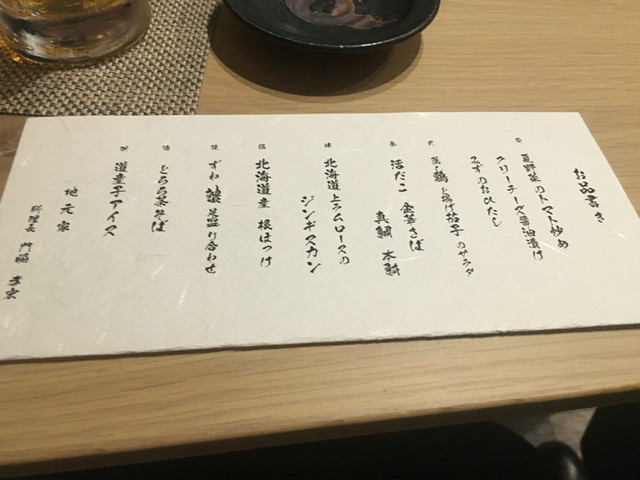 お品書き
夏野菜のトマト炒め
クリームチーズ醤油漬け
みずのおひたし
蒸し鶏と揚げ茄子のサラダ
活だこ 金華さば
真鯛 本鮪
北海道上ラムロースの
ジンギスカン
北海道産 根ぼっけ
ずわい蟹盛り合わせ
とろろ茶そば
道産子アイス
地元家
料理長